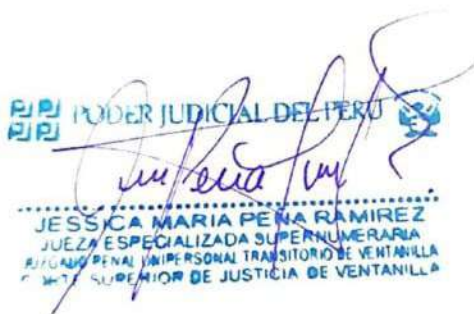 PJ PJ PODER JUDICIAL DEL PERÚ
JESSICA MARIA PEÑA RAMIREZ
JUEZA ESPECIALIZADA SUPERNUMERARIA
JUZGADO PENAL UNIPERSONAL TRANSITORIO DE VENTANILLA
CORTE SUPERIOR DE JUSTICIA DE VENTANILLA